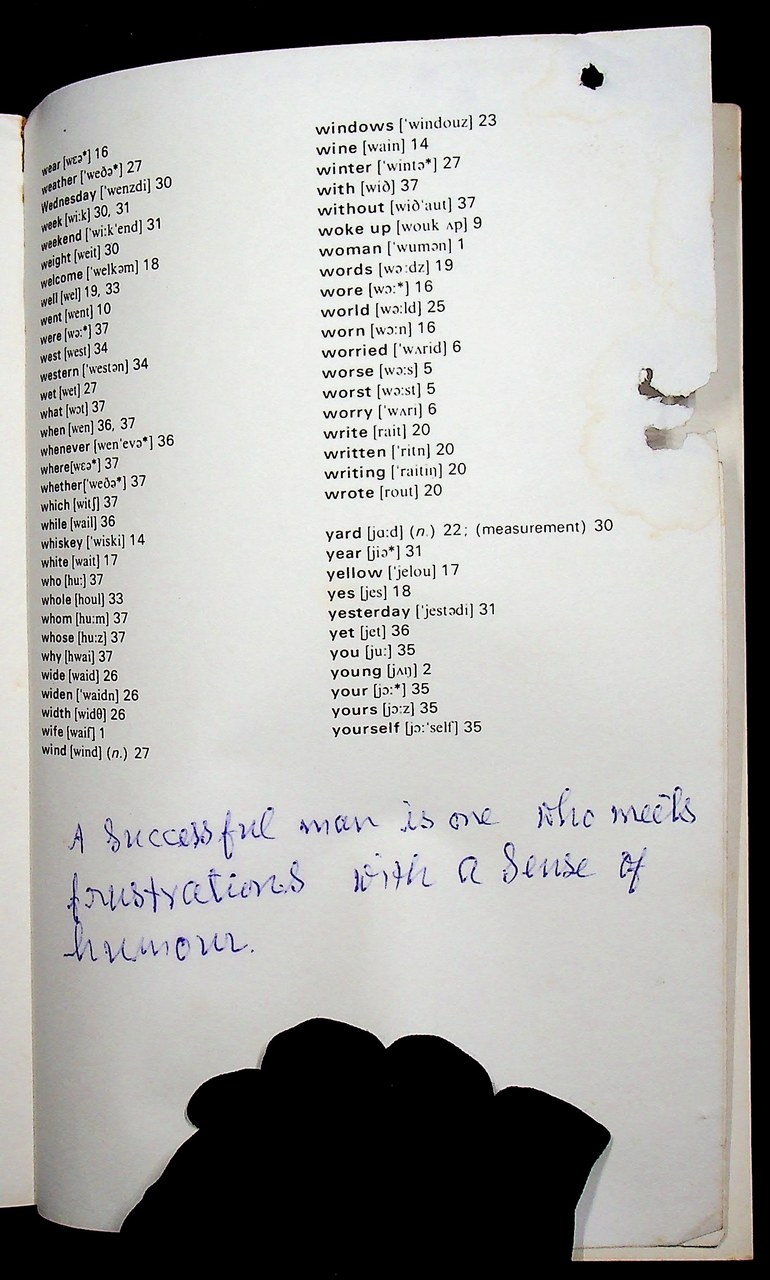 wear [wɛə*] 16
weather ['weðə*] 27
Wednesday ['wenzdi] 30
week [wi:k] 30, 31
weekend ['wi:k'end] 31
weight [weit] 30
welcome ['welkəm] 18
well [wel] 19, 33
went [went] 10
were [wə:*] 37
west [west] 34
western ['westən] 34
wet [wet] 27
what [wɔt] 37
when [wen] 36, 37
whenever [wen'evə*] 36
where[wɛə*] 37
whether['weðə*] 37
which [witʃ] 37
while [wail] 36
whiskey ['wiski] 14
white [wait] 17
who [hu:] 37
whole [houl] 33
whom [hu:m] 37
whose [hu:z] 37
why [hwai] 37
wide [waid] 26
widen ['waidn] 26
width [widθ] 26
wife [waif] 1
wind [wind] (n.) 27
windows ['windouz] 23
wine [wain] 14
winter ['wintə*] 27
with [wið] 37
without [wið'aut] 37
woke up [wouk ʌp] 9
woman ['wumən] 1
words [wə:dz] 19
wore [wɔ:*] 16
world [wə:ld] 25
worn [wɔ:n] 16
worried ['wʌrid] 6
worse [wə:s] 5
worst [wə:st] 5
worry ['wʌri] 6
write [rait] 20
written ['ritn] 20
writing ['raitiŋ] 20
wrote [rout] 20
yard [jɑ:d] (n.) 22; (measurement) 30
year [jiə*] 31
yellow ['jelou] 17
yes [jes] 18
yesterday ['jestədi] 31
yet [jet] 36
you [ju:] 35
young [jʌŋ] 2
your [jɔ:*] 35
yours [jɔ:z] 35
yourself [jɔ:'self] 35
A Successful man is one who meets
frustrations with a Sense of
humour.